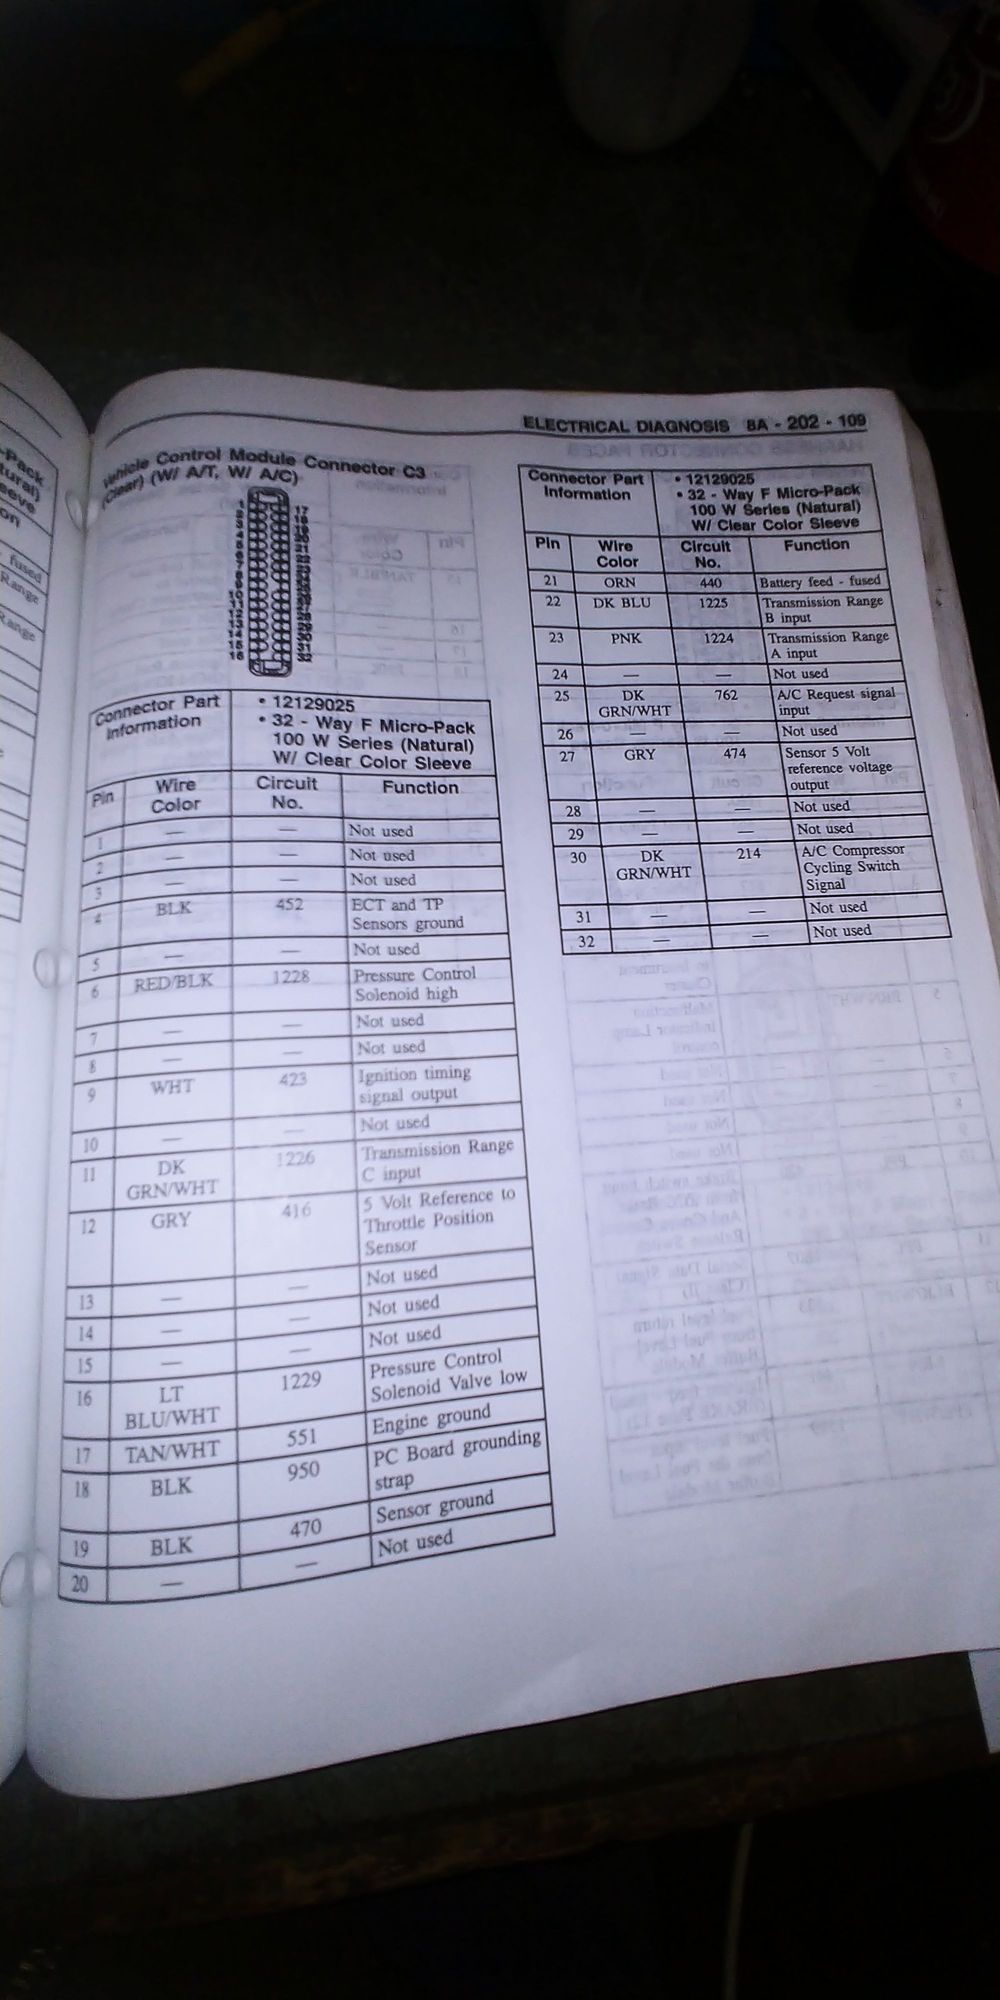 -Pack
tural)
eeve
on
- fused
Range
Range
ELECTRICAL DIAGNOSIS 8A - 202 - 109
Vehicle Control Module Connector C3
(Clear) (W/ A/T, W/ A/C)
1 17
2 18
3 19
4 20
5 21
6 22
7 23
8 24
9 25
10 26
11 27
12 28
13 29
14 30
15 31
16 32
Connector Part Information • 12129025
• 32 - Way F Micro-Pack
100 W Series (Natural)
W/ Clear Color Sleeve
Pin Wire Color Circuit No. Function
1 — — Not used
2 — — Not used
3 — — Not used
4 BLK 452 ECT and TP
Sensors ground
5 — — Not used
6 RED/BLK 1228 Pressure Control
Solenoid high
7 — — Not used
8 — — Not used
9 WHT 423 Ignition timing
signal output
10 — — Not used
11 DK GRN/WHT 1226 Transmission Range
C input
12 GRY 416 5 Volt Reference to
Throttle Position
Sensor
13 — — Not used
14 — — Not used
15 — — Not used
16 LT BLU/WHT 1229 Pressure Control
Solenoid Valve low
17 TAN/WHT 551 Engine ground
18 BLK 950 PC Board grounding
strap
19 BLK 470 Sensor ground
20 — — Not used
Connector Part Information • 12129025
• 32 - Way F Micro-Pack
100 W Series (Natural)
W/ Clear Color Sleeve
Pin Wire Color Circuit No. Function
21 ORN 440 Battery feed - fused
22 DK BLU 1225 Transmission Range
B input
23 PNK 1224 Transmission Range
A input
24 — — Not used
25 DK GRN/WHT 762 A/C Request signal
input
26 — — Not used
27 GRY 474 Sensor 5 Volt
reference voltage
output
28 — — Not used
29 — — Not used
30 DK GRN/WHT 214 A/C Compressor
Cycling Switch
Signal
31 — — Not used
32 — — Not used